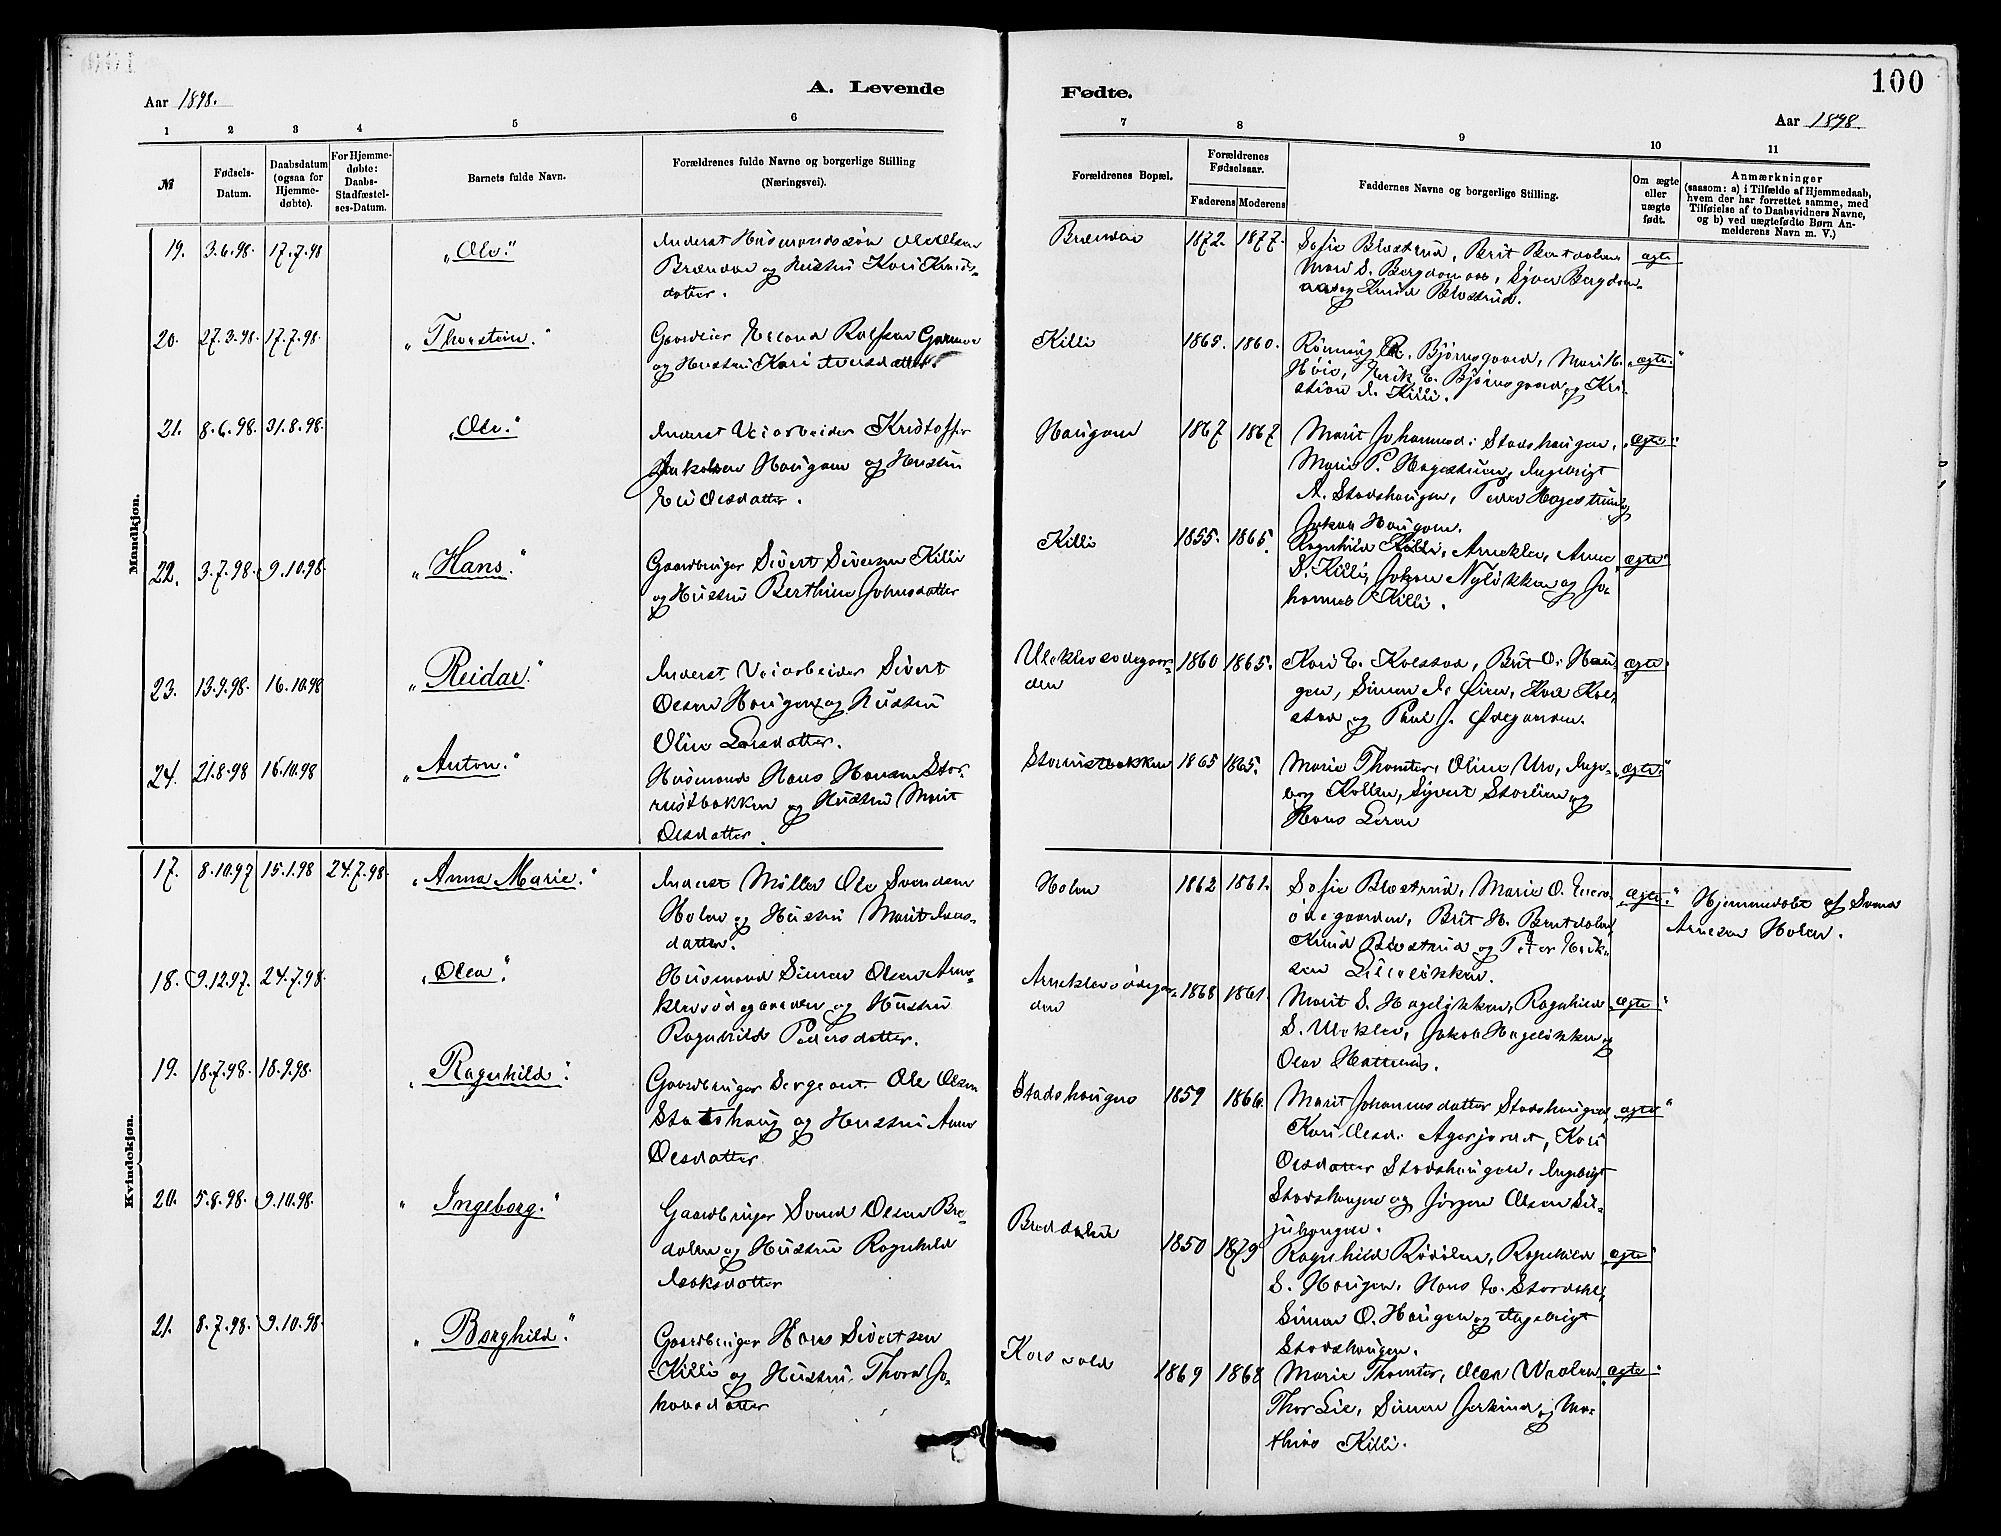 100
Aar 1898.
A. Levende
Fødte.
Aar 1898.
1 2 3 4 5 6 7 8 9 10 11
№
Fødsels-
Datum.
Daabsdatum
(ogsaa for
Hjemme-
døbte).
For Hjemme-
døbte:
Daabs-
Stadfæstel-
ses-Datum.
Barnets fulde Navn.
Forældrenes fulde Navne og borgerlige Stilling
(Næringsvei).
Forældrenes Bopæl.
Forældrenes
Fødselsaar.
Faderens Moderens
Faddernes Navne og borgerlige Stilling.
Om ægte
eller
uægte
født.
Anmærkninger
(saasom: a) i Tilfælde af Hjemmedaab,
hvem der har forrettet samme, med
Tilføielse af to Daabsvidners Navne,
og b) ved uægtefødte Børn An-
melderens Navn m. V.)
Mandkjøn.
19. 3.6.98. 17.7.98 „Ole."
Inderst Husmandssøn Ole Olsen
Brændøe og Hustru Kari Knuds-
datter.
1872. 1877.
Sofie Blestrud, Brit Brutdalen
Mari S. Bergdømaas, Syver Bergdøm-
aas og Knud Blestrud.
ægte
20. 27.3.98. 17.7.98. „Thorstein."
Gaardeier Erland Rolfsen
og Hustru Kari Iversdatter.
Killi 1865. 1860.
Rønnaug E. Bjørnsgaard, Mari H.
Høie, Erik E. Bjørnsgaard og Kri-
stian J. Killi.
„ægte."
21. 8.6.98. 31.8.98. „Ole."
Inderst Veiarbeider Kristoffer
Jakobsen Haugen og Hustru
Eli Olsdatter.
Haugen 1867 1867
Marit Johannesd. Stadshaugen,
Marie P. Hagestuen, Ingebrigt
A. Stadshaugen, Peder Hagestuen og
Jakob Haugen.
„ægte"
22. 3.7.98. 9.10.98. „Hans."
Gaardbruger Sivert Siversen Killi
og Hustru Berthine Johnsdatter
Killi 1855. 1865.
Ragnhild Killi, Arneklev, Arne
S. Killi, Johan Nyløkken og Jo-
hannes Killi.
ægte"
23. 13.9.98. 16.10.98 „Reidar."
Inderst Veiarbeider Sivert
Olsen Haugen og Hustru
Oline Larsdatter.
Uleklevsødegaar-
den
1860 1865.
Kari E. Kolstad, Brit O. Hau-
gen, Simen J. Øien, Karl Kol-
stad og Paul J. Ødegaarden.
ægte
24. 21.8.98 16.10.98 „Anton."
Husmand Hans Hansen Stor-
rustbakken og Hustru Marit
Olsdatter.
Storrustbakken 1865 1865.
Marie Thomter, Oline Uro, Inge-
borg Kollen, Syvert Storlien og
Hans Leren
„ægte."
Kvindekjøn.
17. 8.10.97 15.1.98 24.7.98. „Anna Marie."
Inderst Møller Ole Svendsen
Holen og Hustru Marit Lars-
datter.
Holen 1862 1861.
Sofie Blestrud, Marie O. Ulers-
ødegaarden, Brit H. Brutdalen,
Knud Blestrud og Peter Erik-
sen Lilleløkken.
„ægte."
Hjemmedøbt af Svend
Arnesen Holen.
18. 9.12.97. 24.7.98. „Olea"
Husmand Simen Olsen Arne-
klevsødegaarden og Hustru
Ragnhild Pedersdatter.
Arneklevsødegaar-
den
1868 1861.
Marit S. Hageløkken, Ragnhild
S. Uleklev, Jakob Hageløkken og
Olav Hattrem.
„ægte"
19. 18.7.98. 18.9.98. „Ragnhild."
Gaardbruger Sergeant Ole Olsen
Stadshaug og Hustru Anne
Olsdatter
Stadshaugen 1859 1866.
Marit Johannesdatter Stadshaugen,
Kari Olsd. Agerjordet, Kari
Olsdatter Stadshaugen, Ingebrigt
Stadshaugen og Jørgen Olsen Sil-
juhaugen.
„ægte"
20. 5.8.98. 9.10.98. „Ingeborg."
Gaardbruger Svend Olsen Bre-
dalen og Hustru Ragnhild
Isaksdatter
1850 1879
Ragnhild Rødølen, Ragnhild
S. Haugen, Hans E. Stordahl,
Simen O. Haugen og Ingebrigt
Stadshaugen.
ægte"
21. 8.7.98. 9.10.98. „Borghild."
Gaardbruger Hans Sivertsen
Killi og Hustru Thora Jo-
hansdatter
Korsvold 1869 1868
Marie Thomter, Olea Vaalen
Thor Lie, Simen Jerkind og Ma-
thias Killi.
ægte